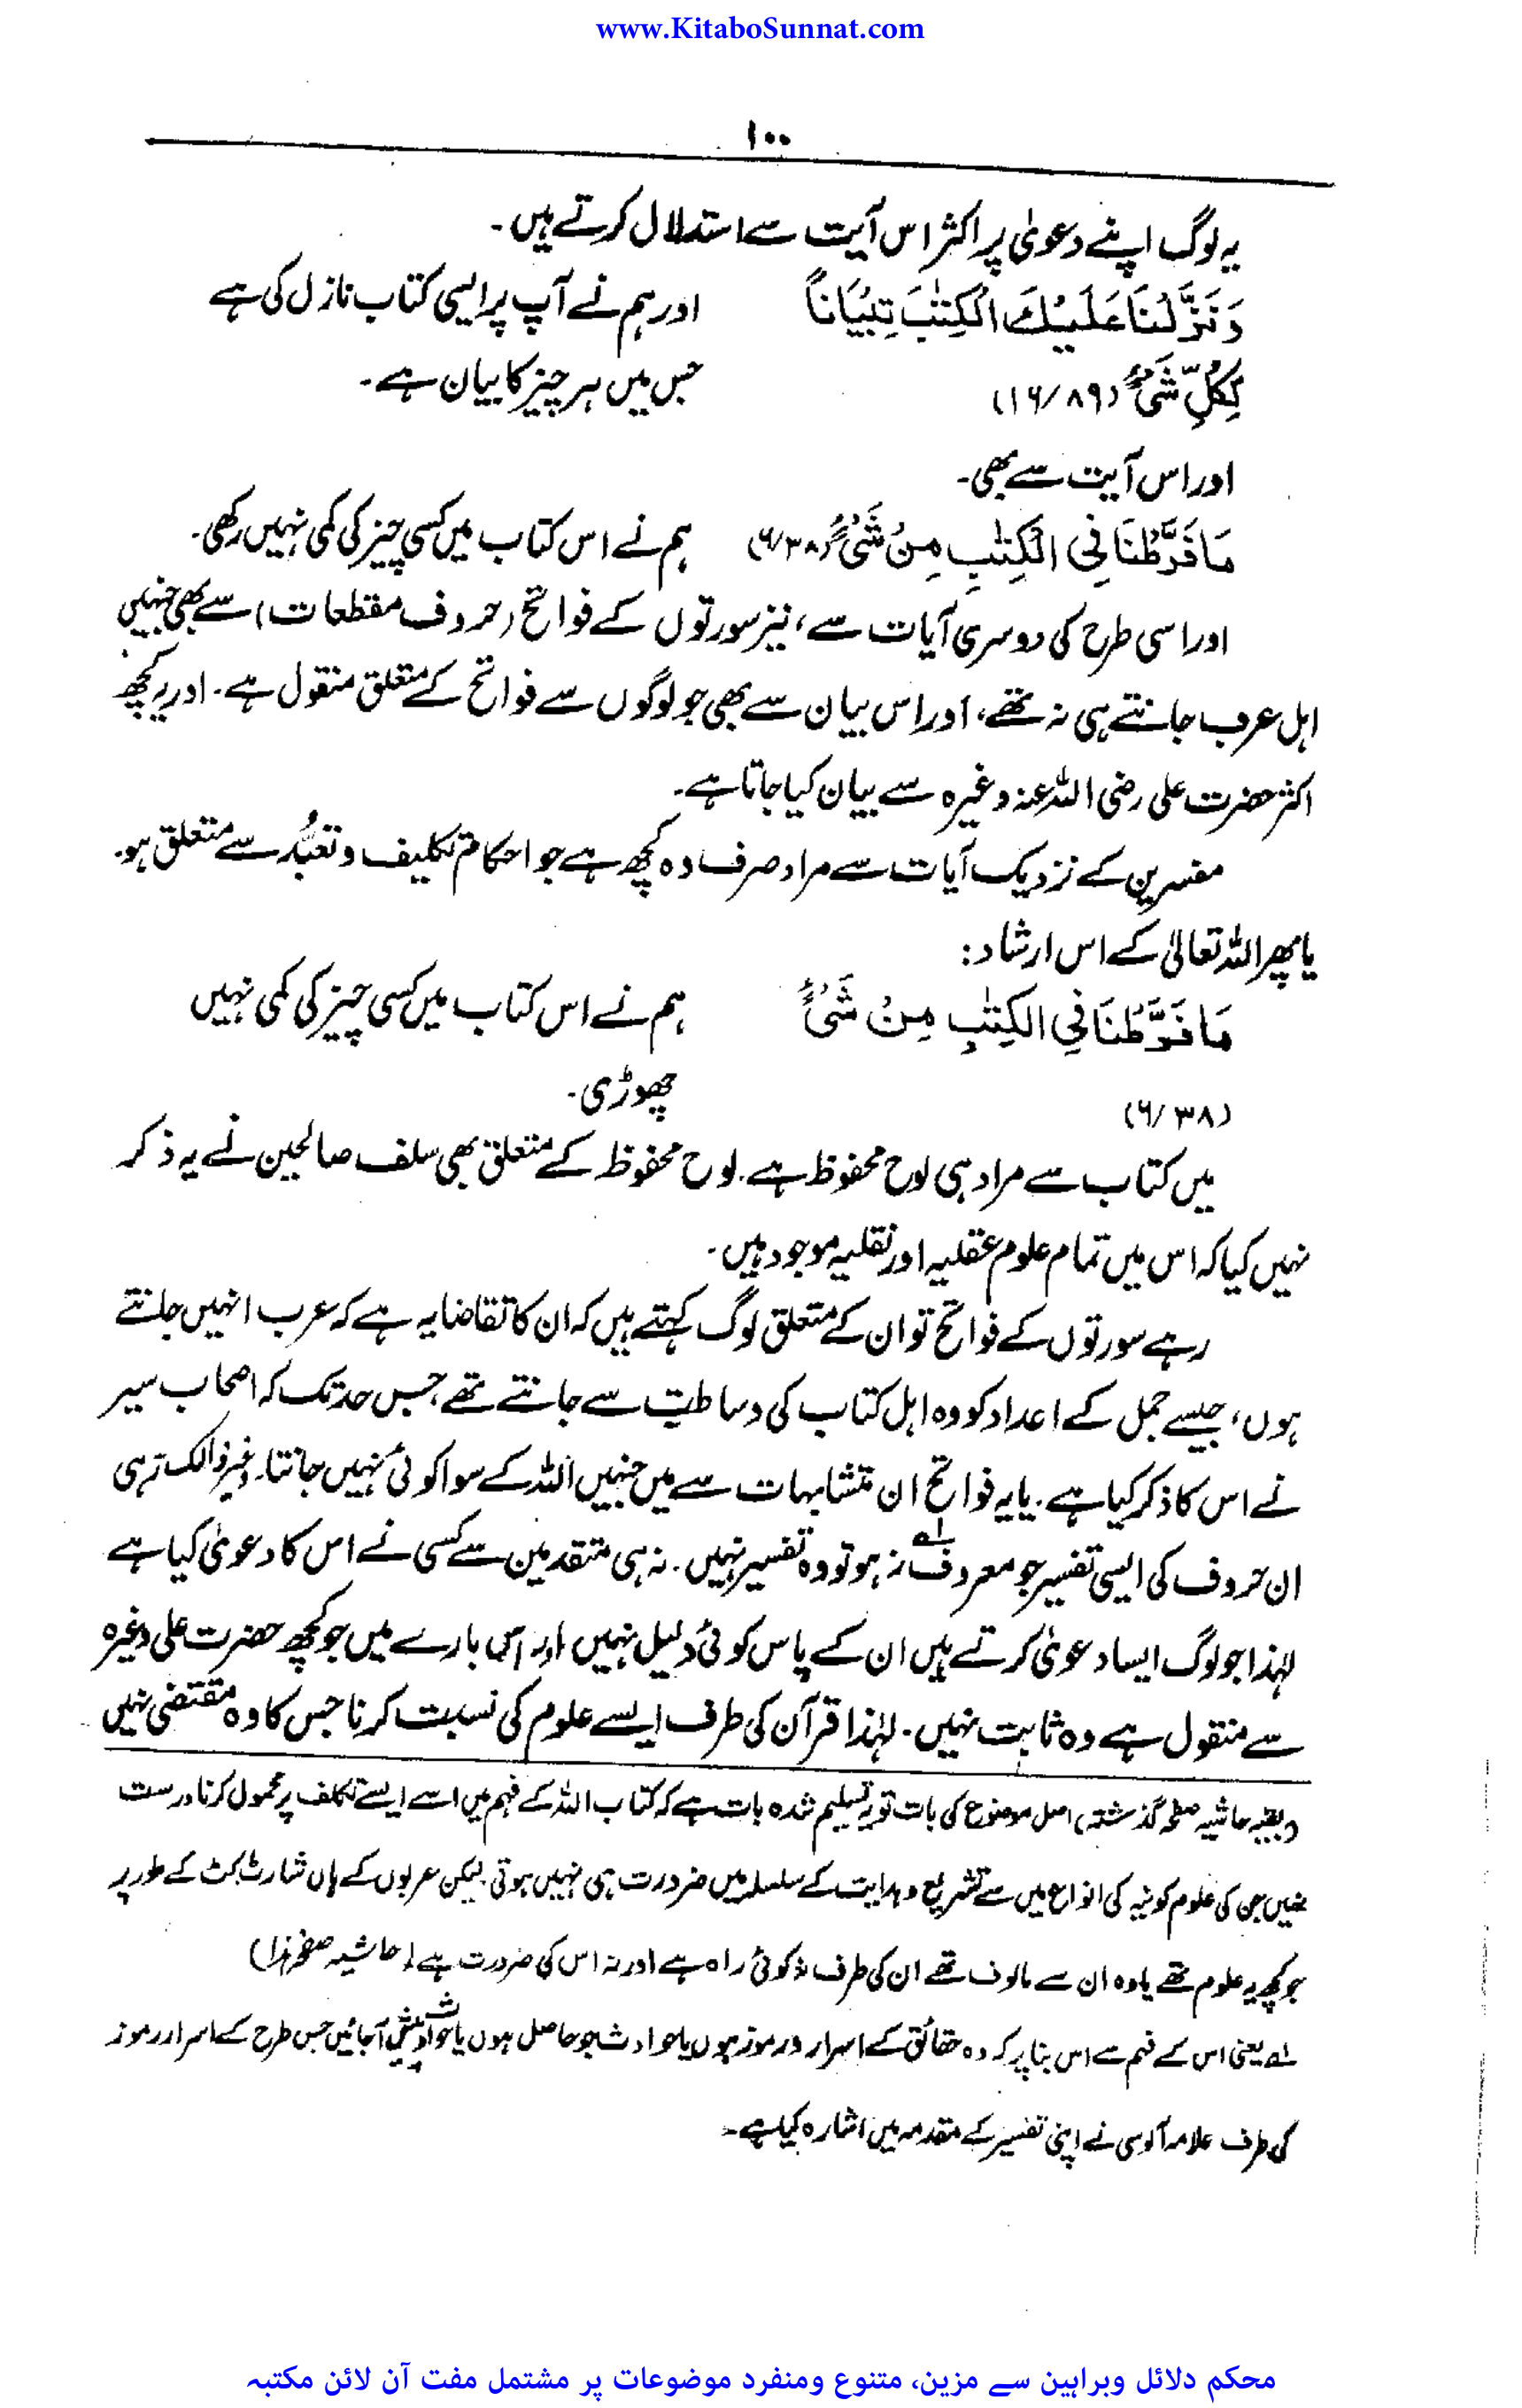 www.KitaboSunnat.com
۱۰۰
یہ لوگ اپنے دعویٰ پر اکثر اس آیت سے استدلال کرتے ہیں۔
وَنَزَّلْنَا عَلَيْكَ الْكِتٰبَ تِبْيَاناً اور ہم نے آپ پر ایسی کتاب نازل کی ہے
لِكُلِّ شَيْءٍ (۱۶/۸۹) جس میں ہر چیز کا بیان ہے۔
اور اس آیت سے بھی۔
مَا فَرَّطْنَا فِي الْكِتٰبِ مِنْ شَيْءٍ (۶/۳۸) ہم نے اس کتاب میں کسی چیز کی کمی نہیں رکھی۔
اور اسی طرح کی دوسری آیات سے، نیز سورتوں کے فواتح (حروف مقطعات) سے بھی جنہیں
اہل عرب جانتے ہی نہ تھے، اور اس بیان سے بھی جو لوگوں سے فواتح کے متعلق منقول ہے۔ اور یہ کچھ
اکثر حضرت علی رضی اللہ عنہ وغیرہ سے بیان کیا جاتا ہے۔
مفسرین کے نزدیک آیات سے مراد صرف وہ کچھ ہے جو احکام تکلیف و تعبُّد سے متعلق ہو۔
یا پھر اللہ تعالیٰ کے اس ارشاد:
مَا فَرَّطْنَا فِي الْكِتٰبِ مِنْ شَيْءٍ ہم نے اس کتاب میں کسی چیز کی کمی نہیں
(۶/۳۸) چھوڑی۔
میں کتاب سے مراد ہی لوح محفوظ ہے۔ لوح محفوظ کے متعلق بھی سلف صالحین نے یہ ذکر
نہیں کیا کہ اس میں تمام علوم عقلیہ اور نقلیہ موجود ہیں۔
رہے سورتوں کے فواتح تو ان کے متعلق لوگ کہتے ہیں کہ ان کا تقاضا یہ ہے کہ عرب انہیں جانتے
ہوں، جیسے جمل کے اعداد کو وہ اہل کتاب کی وساطت سے جانتے تھے جس حد تک کہ اصحاب سیر
نے اس کا ذکر کیا ہے۔ یا یہ فواتح ان متشابہات سے ہیں جنہیں اللہ کے سوا کوئی نہیں جانتا۔ وغیر ذالک رہی
ان حروف کی ایسی تفسیر جو معروف۱؎ نہ ہو تو وہ تفسیر نہیں۔ نہ ہی متقدمین سے کسی نے اس کا دعویٰ کیا ہے
لہذا جو لوگ ایسا دعویٰ کرتے ہیں ان کے پاس کوئی دلیل نہیں اور اس بارے میں جو کچھ حضرت علی وغیرہ
سے منقول ہے وہ ثابت نہیں۔ لہٰذا قرآن کی طرف ایسے علوم کی نسبت کرنا جس کا وہ مقتضی نہیں
(بقیہ حاشیہ صفحہ گذشتہ) اصل موضوع کی بات تو یہ تسلیم شدہ بات ہے کہ کتاب اللہ کے فہم میں اسے ایسے تکلف پر محمول کرنا درست
نہیں جن کی علوم کونیہ کی انواع میں سے تشریع و ہدایت کے سلسلہ میں ضرورت ہی نہیں ہوتی۔ لیکن عربوں کے ہاں شارٹ کٹ کے طور پر
جو کچھ یہ علوم تھے یا وہ ان سے مالوف تھے ان کی طرف نہ کوئی راہ ہے اور نہ اس کی ضرورت ہے (حاشیہ صفحہ ہذا)
۱؎ یعنی اس کے فہم سے اس بنا پر کہ وہ حقائق کے اسرار و رموز ہوں یا حوادث جو حاصل ہوں یا حوادث پیش آجائیں جس طرح کے اسرار رموز
کی طرف علامہ آلوسی نے اپنی تفسیر کے مقدمہ میں اشارہ کیا ہے۔
محکم دلائل وبراہین سے مزین، متنوع ومنفرد موضوعات پر مشتمل مفت آن لائن مکتبہ